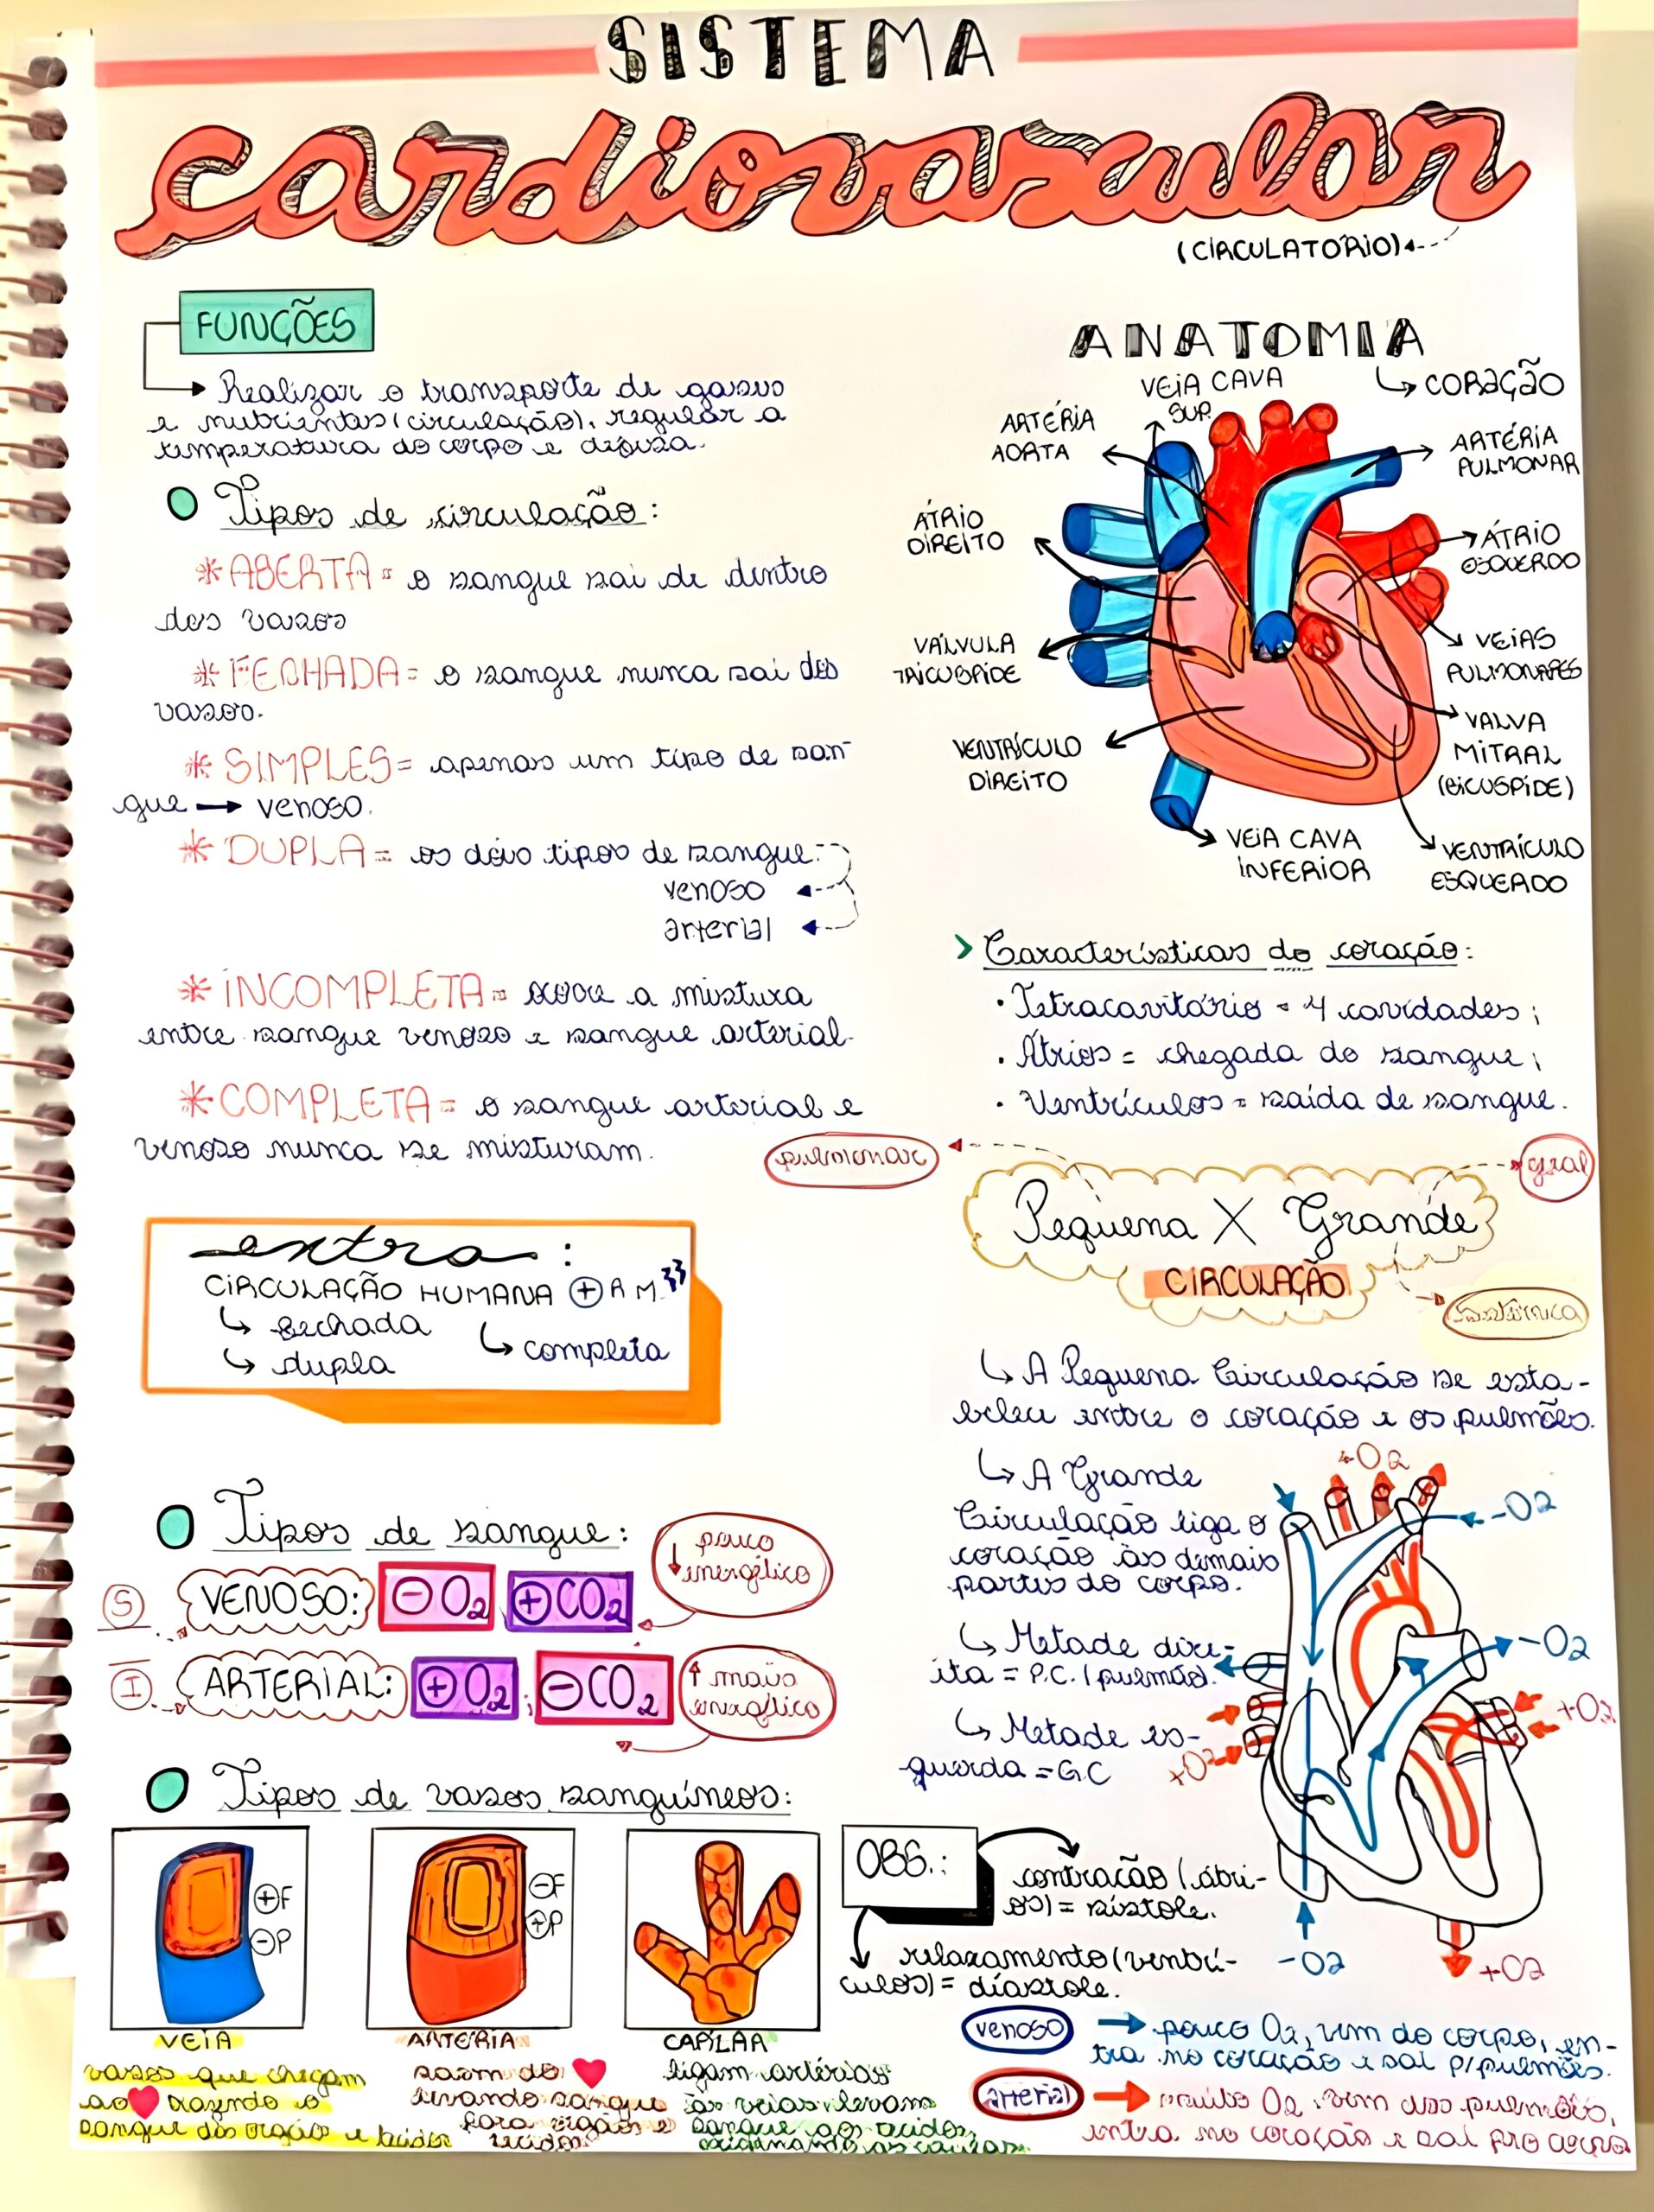 SISTEMA
cardiovascular
(CIRCULATÓRIO)
FUNÇÕES
Realizar o transporte de gases
e nutrientes (circulação), regular a
temperatura do corpo e defesa.
Tipos de circulação:
* ABERTA = o sangue sai de dentro
dos vasos
* FECHADA = o sangue nunca sai dos
vasos.
* SIMPLES = apenas um tipo de san-
gue → venoso.
* DUPLA = os dois tipos de sangue:
venoso
arterial
* INCOMPLETA = ocorre a mistura
entre sangue venoso e sangue arterial.
* COMPLETA = o sangue arterial e
venoso nunca se misturam.
extra:
CIRCULAÇÃO HUMANA ⊕ A M.
↳ fechada
↳ completa
↳ dupla
Tipos de sangue:
pouco
↓ energético
S
VENOSO: ⊖ O2 ⊕ CO2
I
ARTERIAL: ⊕ O2; ⊖ CO2
↑ mais
energético
Tipos de vasos sanguíneos:
⊕F
⊖P
VEIA
vasos que chegam
ao ♥ trazendo o
sangue dos órgãos e tecidos
⊖F
⊕P
ARTÉRIA
saem do ♥
levando sangue
para órgãos e
tecidos
CAPILAR
ligam artérias
às veias levam
sangue aos tecidos,
oxigenando as células.
ANATOMIA
↳ CORAÇÃO
VEIA CAVA
SUP.
ARTÉRIA
AORTA
ARTÉRIA
PULMONAR
ÁTRIO
DIREITO
ÁTRIO
ESQUERDO
VÁLVULA
TRICUSPÍDE
VEIAS
PULMONARES
VALVA
MITRAL
(BICUSPÍDE)
VENTRÍCULO
DIREITO
VEIA CAVA
INFERIOR
VENTRÍCULO
ESQUERDO
> Características do coração:
• Tetracavitário = 4 cavidades;
• Átrios = chegada do sangue;
• Ventrículos = saída de sangue.
pulmonar
geral
Pequena X Grande
CIRCULAÇÃO
sistêmica
↳ A Pequena Circulação se esta-
belece entre o coração e os pulmões.
↳ A Grande
Circulação liga o
coração às demais
partes do corpo.
↳ Metade dire-
ita = P.C. (pulmão).
↳ Metade es-
querda = G.C
+O2
-O2
-O2
+O2
+O2
-O2
+O2
OBS.:
contração (átri-
os) = sístole.
relaxamento (ventrí-
culos) = diástole.
venoso → pouco O2, vem do corpo, en-
tra no coração e sai p/ pulmões.
arterial → muito O2, vem dos pulmões,
entra no coração e sai pro corpo